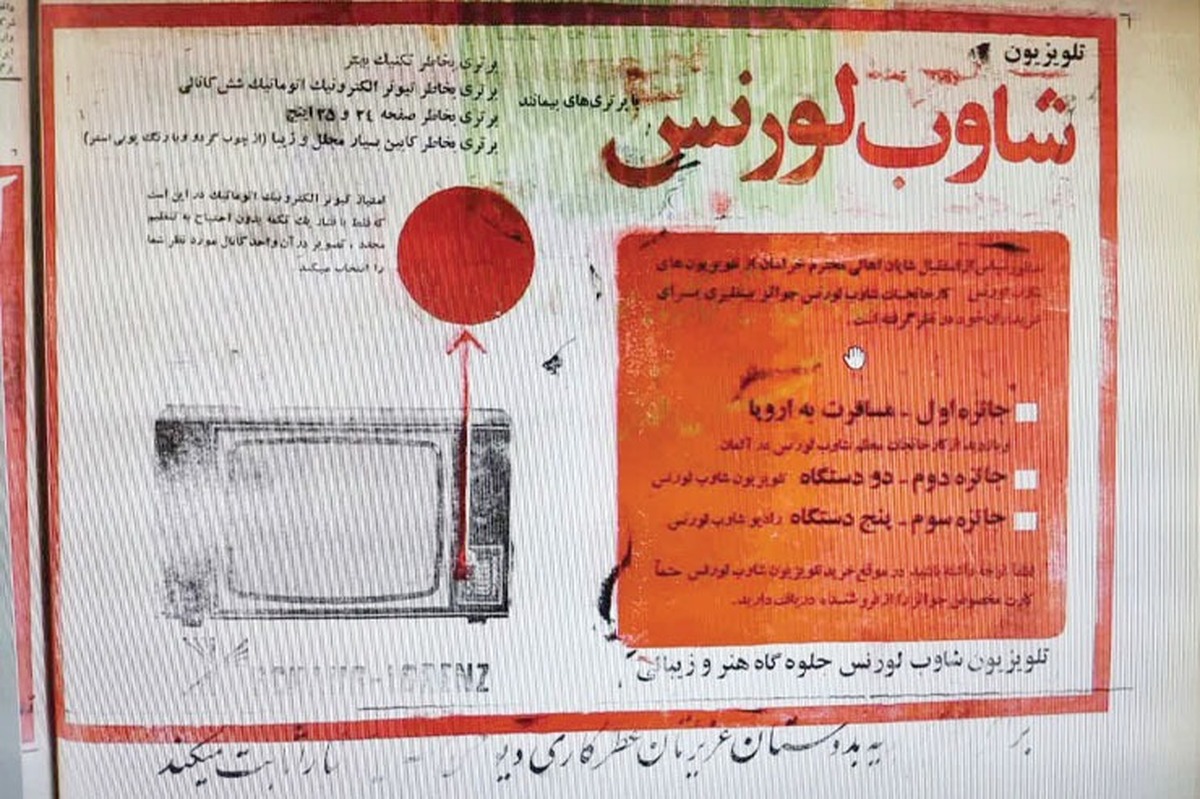 تلویزیون
شاوب لورنس
با برتری‌های بیمانند
برتری بخاطر تکنیک بهتر
برتری بخاطر تیونر الکترونیک اتوماتیک شش کانالی
برتری بخاطر صفحه ۲۴ و ۲۵ اینچ
برتری بخاطر کابین بسیار مجلل و زیبا (از چوب گردو و یا رنگ پولی استر)
امتیاز تیونر الکترونیک اتوماتیک در این است
که فقط با فشار یک تکمه بدون احتیاج به تنظیم
مجدد، تصویر در آن واحد کانال مورد نظر شما
را انتخاب میکند
از استقبال شایان اهالی محترم خراسان از تلویزیون های
شاوب لورنس کارخانجات شاوب لورنس جوائز بینظیری برای
خریداران خود در نظر گرفته است.
جائزه اول - مسافرت به اروپا
و بازدید از کارخانجات معظم شاوب لورنس در آلمان
جائزه دوم - دو دستگاه تلویزیون شاوب لورنس
جائزه سوم - پنج دستگاه رادیو شاوب لورنس
لطفا توجه داشته باشید در موقع خرید تلویزیون شاوب لورنس حتماً
کارت مخصوص جوائز را از فروشنده دریافت دارید.
تلویزیون شاوب لورنس جلوه گاه هنر و زیبائی
SCHAUB-LORENZ
به دوستان عزیزتان عطر کاری را ثابت میکند